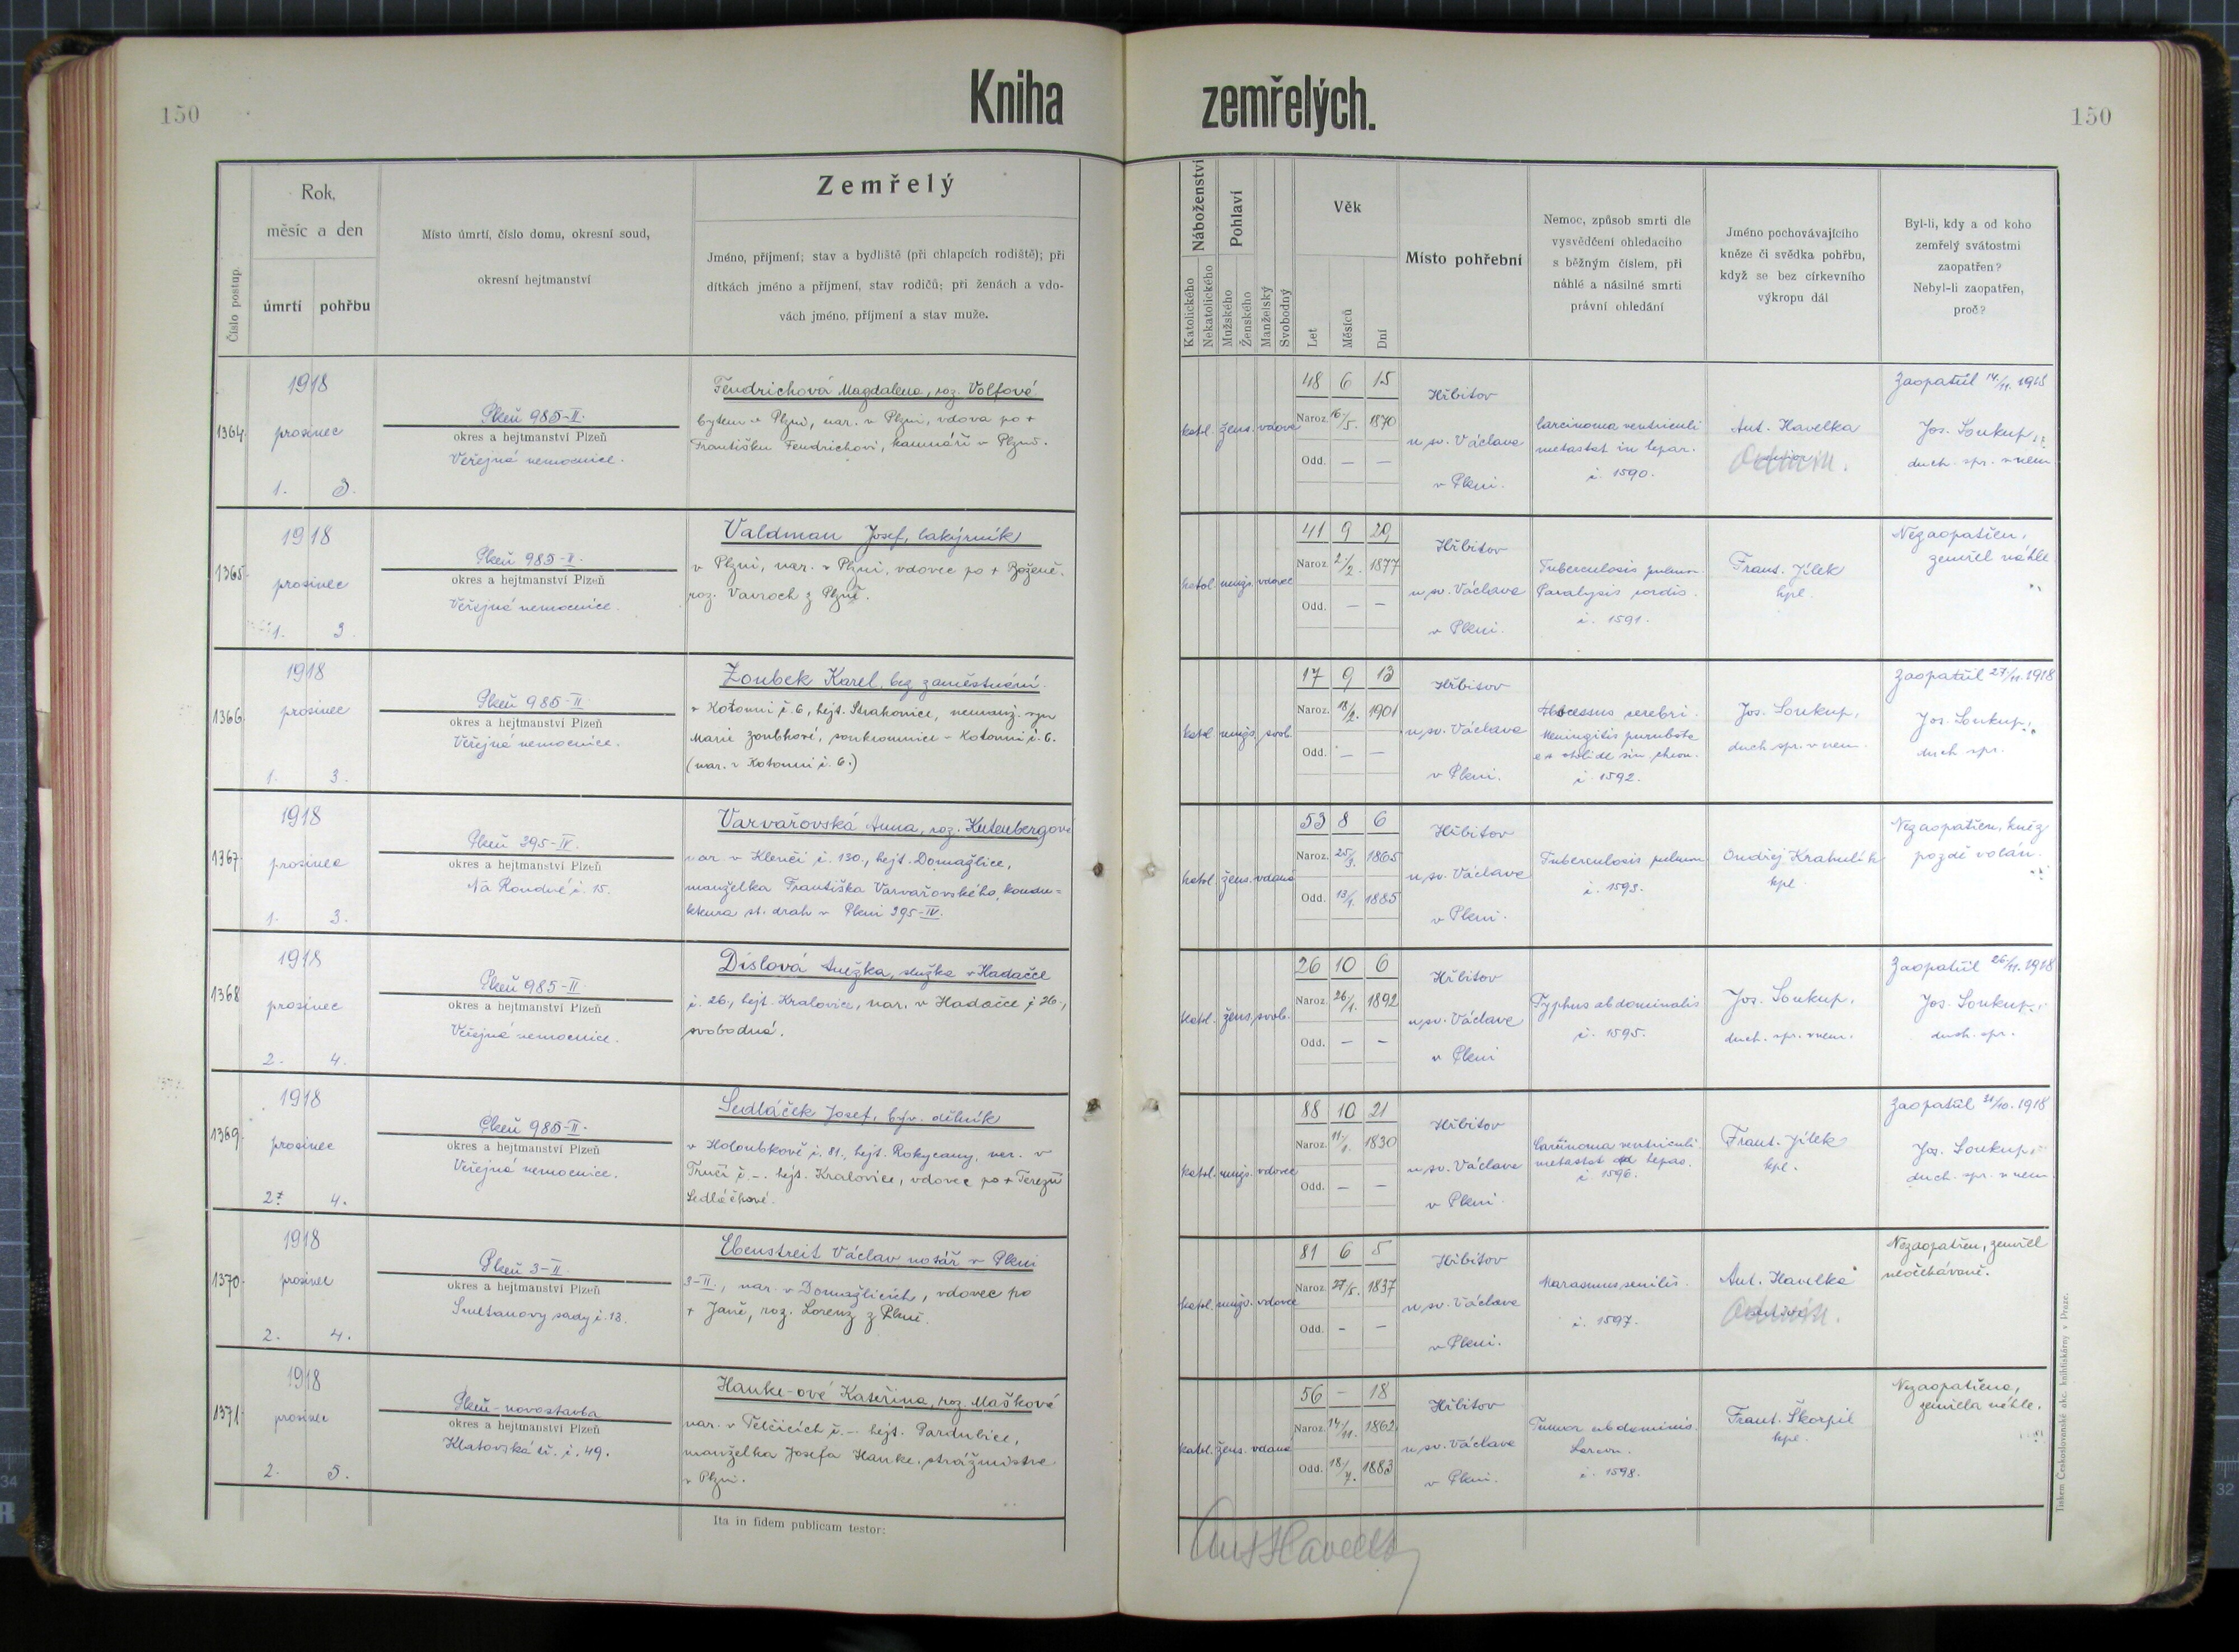 150
Kniha
zemřelých.
150
Číslo postup.
Rok,
měsíc a den
úmrtí
pohřbu
Místo úmrtí, číslo domu, okresní soud,
okresní hejtmanství
Zemřelý
Jméno, příjmení; stav a bydliště (při chlapcích rodiště); při
dítkách jméno a příjmení, stav rodičů; při ženách a vdo-
vách jméno, příjmení a stav muže.
Náboženství
Katolického
Nekatolického
Pohlaví
Mužského
Ženského
Manželský
Svobodný
Věk
Let
Měsíců
Dní
Místo pohřební
Nemoc, způsob smrti dle
vysvědčení ohledacího
s běžným číslem, při
náhlé a násilné smrti
právní ohledání
Jméno pochovávajícího
kněze či svědka pohřbu,
když se bez církevního
výkropu dál
Byl-li, kdy a od koho
zemřelý svátostmi
zaopatřen?
Nebyl-li zaopatřen,
proč?
1364.
1918
prosinec
1. 3.
Plzeň 985-II.
okres a hejtmanství Plzeň
Veřejná nemocnice.
Fendrichová Magdalena, roz. Volfová
bytem v Plzni, nar. v Plzni, vdova po +
Františku Fendrichovi, kamnáři v Plzni.
katol. žens. vdova
48 6 15
Naroz. 16/5. 1870
Odd. — —
Hřbitov
u sv. Václava
v Plzni.
Carcinoma ventriculi
metastat in hepar.
č. 1590.
Ant. Havelka
Zaopatřil 14./11. 1918
Jos. Soukup,
duch. spr. v nem.
1365.
1918
prosinec
1. 3.
Plzeň 985-II.
okres a hejtmanství Plzeň
Veřejná nemocnice.
Valdman Josef, lakýrník
v Plzni, nar. v Plzni, vdovec po + Boženě.
roz. Vavroch z Plzně.
katol. mužs. vdovec
41 9 29
Naroz. 2./2. 1877
Odd. — —
Hřbitov
u sv. Václava
v Plzni.
Tuberculosis pulmon.
Paralysis cordis.
č. 1591.
Frant. Jílek
kpl.
Nezaopatřen,
zemřel náhle
1366.
1918
prosinec
1. 3.
Plzeň 985-II
okres a hejtmanství Plzeň
Veřejná nemocnice.
Zoubek Karel, bez zaměstnání
v Kotouni č. 6, hejt. Strakonice, nemanž. syn
Marie Zoubkové, soukromnice v Kotouni č. 6.
(nar. v Kotouni č. 6.)
katol. mužs. svob.
17 9 13
Naroz. 18/2. 1901
Odd. — —
Hřbitov
u sv. Václava
v Plzni.
Abscessus cerebri.
Meningitis
č. 1592.
Jos. Soukup,
duch. spr. v nem.
Zaopatřil 27/11. 1918
Jos. Soukup,
duch. spr.
1367.
1918
prosinec
1. 3.
Plzeň 395-IV.
okres a hejtmanství Plzeň
Na Roudné č. 15.
Varvařovská Anna, roz. Kutenbergová
nar. v Klenčí č. 130., hejt. Domažlice,
manželka Františka Varvařovského, kondu-
ktéra st. drah v Plzni 395-IV.
katol. žens. vdaná
53 8 6
Naroz. 25/3. 1865
Odd. 1885
Hřbitov
u sv. Václava
v Plzni.
Tuberculosis pulmon
č. 1593.
Ondřej Krahulík
kpl.
Nezaopatřena, kněz
pozdě volán.
1368
1918
prosinec
2. 4.
Plzeň 985-II
okres a hejtmanství Plzeň
Veřejná nemocnice.
Díslová Anežka, služka v Hadačce
č. 26., hejt. Kralovice, nar. v Hadačce č 26.,
svobodná.
katol. žens. svob.
26 10 6
Naroz. 26/1. 1892
Odd. — —
Hřbitov
u sv. Václava
v Plzni
Typhus abdominalis
č. 1595.
Jos. Soukup,
duch. spr. v nem.
Zaopatřil 26/11. 1918
Jos. Soukup,
duch. spr.
1369.
1918
prosinec
2. 4.
Plzeň 985-II.
okres a hejtmanství Plzeň
Veřejná nemocnice.
Sedláček Josef, býv. dělník
v Holoubkově č. 81., hejt. Rokycany, nar. v
č. –. hejt. Kralovice, vdovec po + Terezii
Sedláčkové.
katol. mužs. vdovec
88 10 21
Naroz. 11./1. 1830
Odd. — —
Hřbitov
u sv. Václava
v Plzni.
Carcinoma ventriculi
metastat ad hepar.
č. 1596.
Frant. Jílek
kpl.
Zaopatřil 31/10. 1918
Jos. Soukup,
duch. spr. v nem.
1370.
1918
prosinec
2. 4.
Plzeň 3-II.
okres a hejtmanství Plzeň
Smetanovy sady č. 13.
Ebenstreit Václav notář v Plzni
3-II., nar. v Domažlicích, vdovec po
+ Janě, roz. Lorenz z Plzně.
katol. mužs. vdovec
81 6 5
Naroz. 27/5. 1837
Odd. — —
Hřbitov
u sv. Václava
v Plzni.
Marasmus senilis.
č. 1597.
Ant. Havelka
Nezaopatřen, zemřel
neočekávaně.
1371.
1918
prosinec
2. 5.
Plzeň - novostavba
okres a hejtmanství Plzeň
Klatovská tř. č. 49.
Hanke-ová Kateřina, roz. Mašková
nar. v Telčicích č. –. hejt. Pardubice,
manželka Josefa Hanke, strážmistra
v Plzni.
katol. žens. vdaná
56 — 18
Naroz. 14/11. 1862
Odd. 18/7. 1883
Hřbitov
u sv. Václava
v Plzni.
Tumor abdominis.
č. 1598.
Frant. Škorpil
kpl.
Nezaopatřena,
zemřela náhle.
Ita in fidem publicam testor:
Ant Havelka
Tiskem Československé akc. knihtiskárny v Praze.